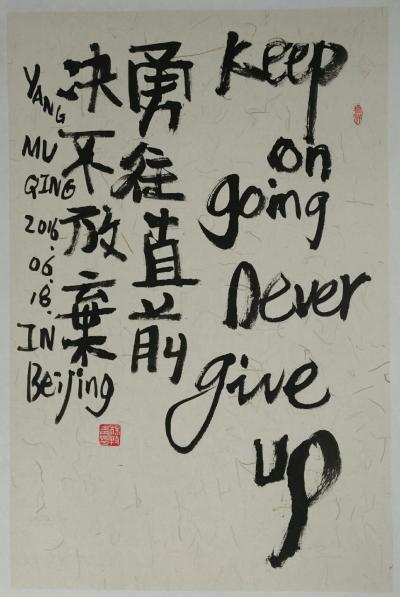 Keep
on
going
never
give
up
勇往直前
决不放棄
YANG
MU
QING
2016.
06.
18.
IN
Beijing